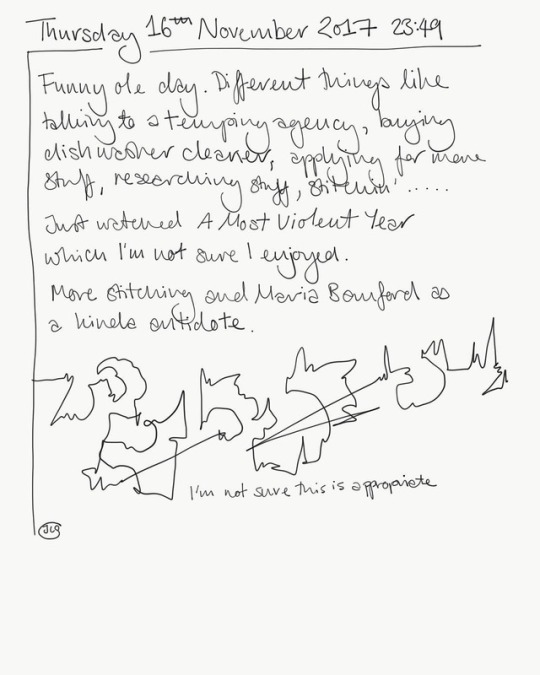 Thursday 16th November 2017 23:49
Funny ole day. Different things like
talking to a temping agency, buying
dishwasher cleaner, applying for more
stuff, researching stuff, stitchin' .....
Just watched A Most Violent Year
which I'm not sure I enjoyed.
More stitching and Maria Bamford as
a kinda antidote.
I'm not sure this is appropriate